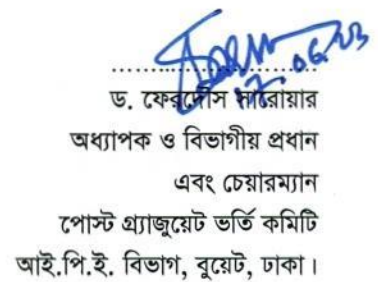 ড. ফেরদৌস সারোয়ার
অধ্যাপক ও বিভাগীয় প্রধান
এবং চেয়ারম্যান
পোস্ট গ্র্যাজুয়েট ভর্তি কমিটি
আই.পি.ই. বিভাগ, বুয়েট, ঢাকা।